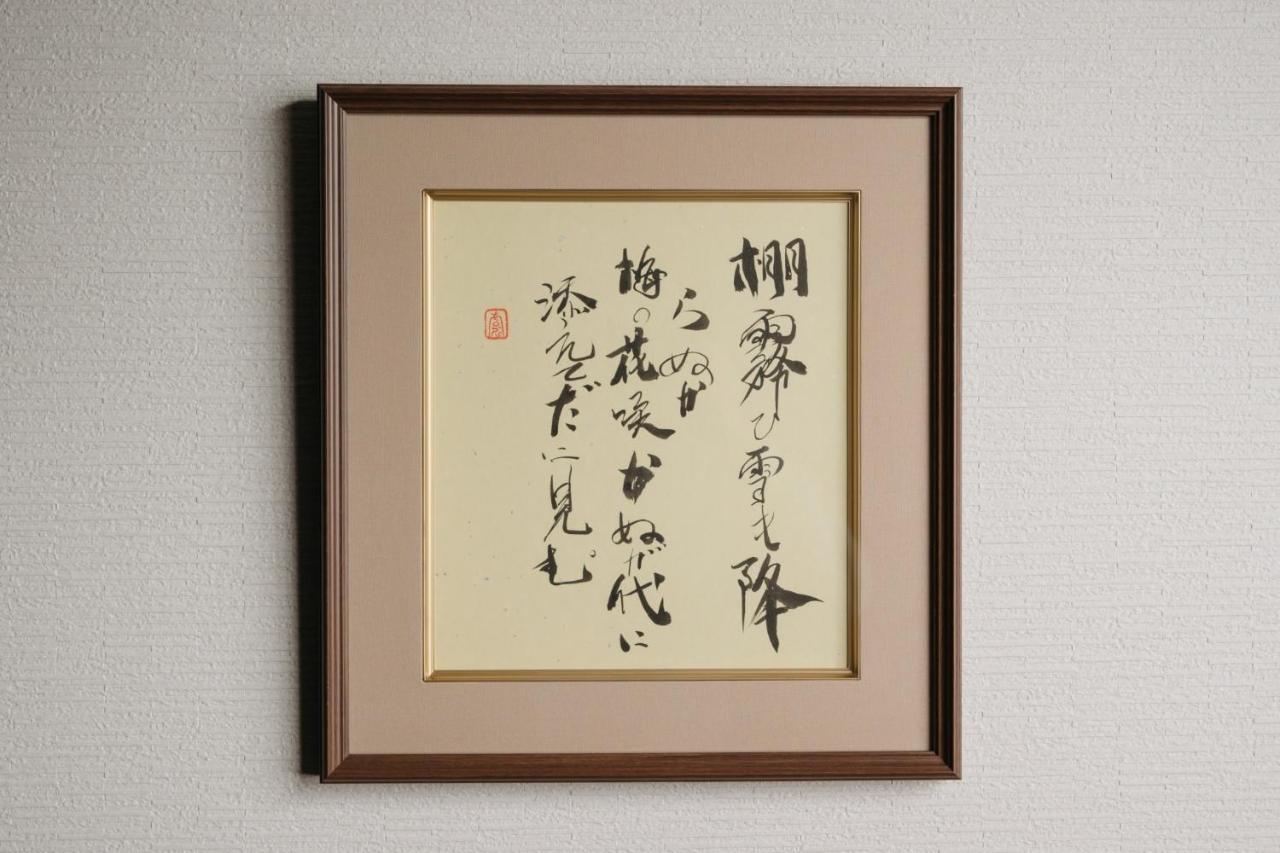 棚霧ひ雪も降
らぬか
梅の花咲かぬが代に
添へてだに見む